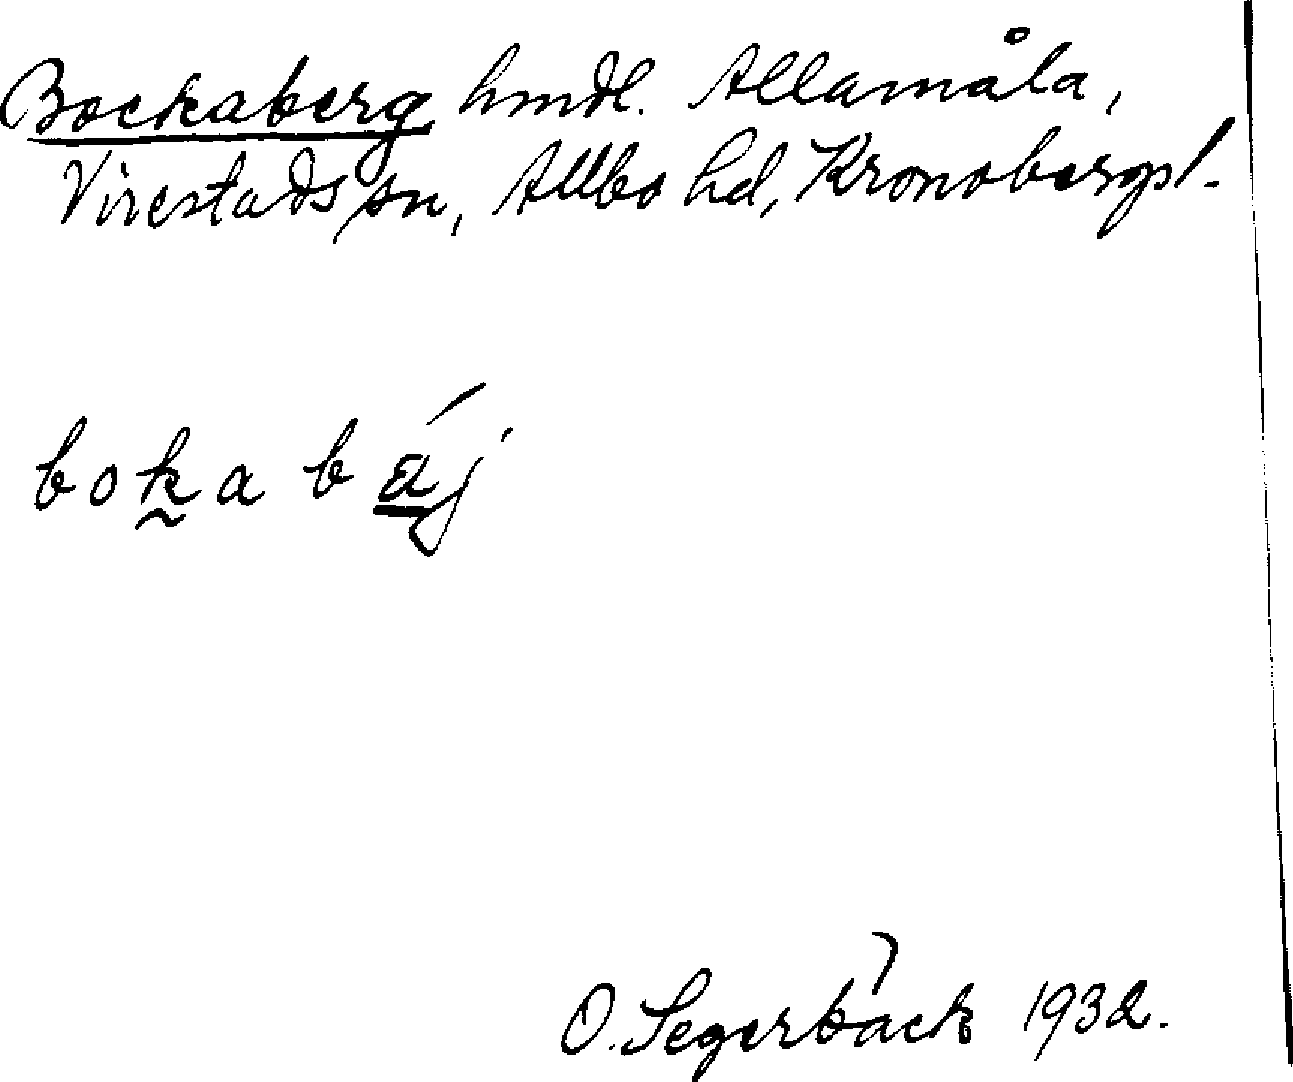 Bockaberg hmdl. Allamåla,
Virestads sn, Allbo hd, Kronobergs l.
bok̰a bä́j
O. Segerbäck 1932.